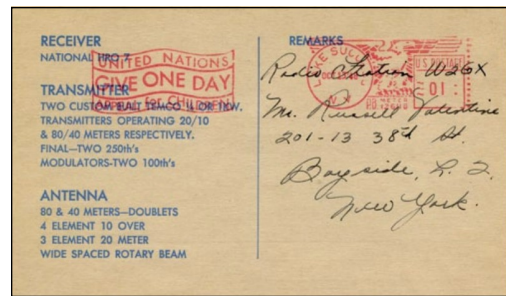 RECEIVER
NATIONAL HRO 7
UNITED NATIONS
GIVE ONE DAY
APPEAL for CHILDREN
TRANSMITTER
TWO CUSTOM BUILT TEMCO 1KW.
TRANSMITTERS OPERATING 20/10
& 80/40 METERS RESPECTIVELY.
FINAL—TWO 250th's
MODULATORS—TWO 100th's
ANTENNA
80 & 40 METERS—DOUBLETS
4 ELEMENT 10 OVER
3 ELEMENT 20 METER
WIDE SPACED ROTARY BEAM
REMARKS
LAKE SUCCESS
N.Y.
U.S. POSTAGE
01
METER
Radio Station W2GX
Mr. Russell Valentine
201-13 38th St.
Bayside, L. I.
New York.